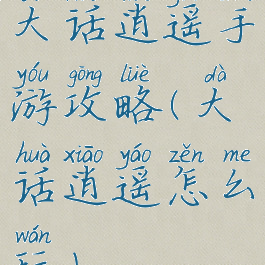 大话逍遥手
yóu gōng lüè dà
游攻略(大
huà xiāo yáo zěn me
话逍遥怎么
wán